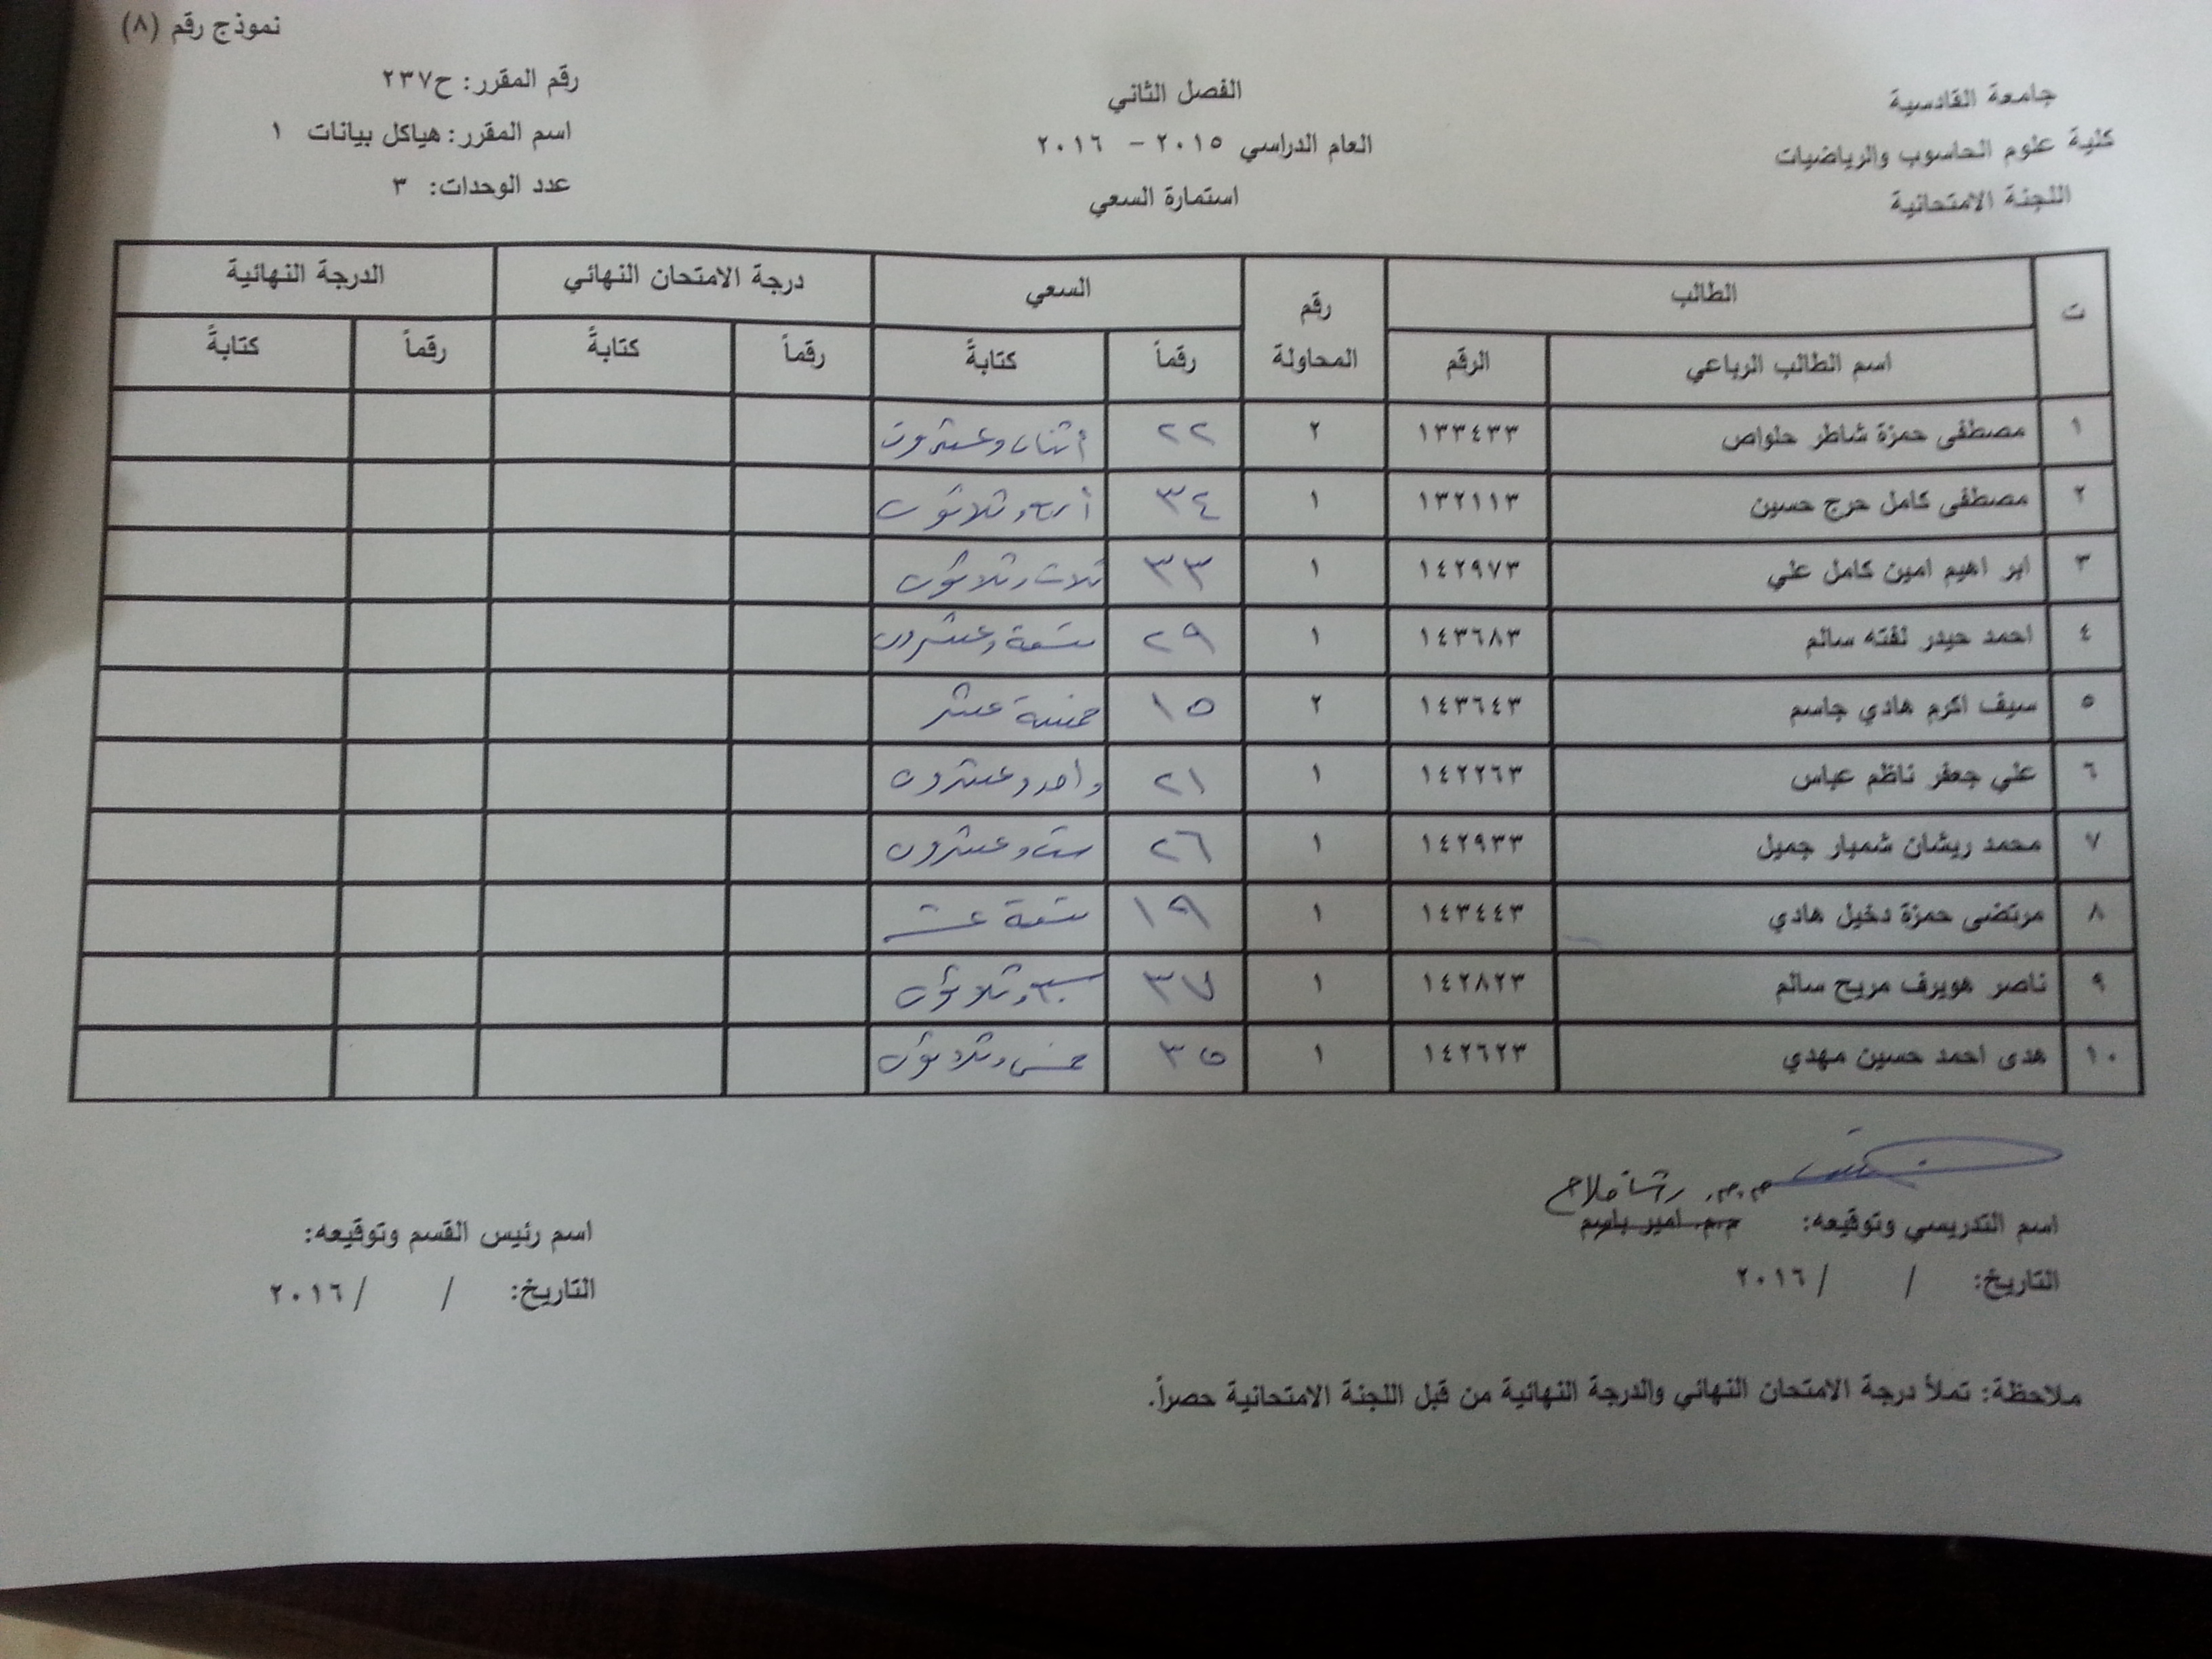 نموذج رقم (٨)
جامعة القادسية
الفصل الثاني
رقم المقرر: ح٢٣٧
كلية علوم الحاسوب والرياضيات
العام الدراسي ٢٠١٥ – ٢٠١٦
اسم المقرر: هياكل بيانات ١
اللجنة الامتحانية
استمارة السعي
عدد الوحدات: ٣
ت الطالب رقم المحاولة السعي درجة الامتحان النهائي الدرجة النهائية
اسم الطالب الرباعي الرقم رقماً كتابةً رقماً كتابةً رقماً كتابةً
١ مصطفى حمزة شاطر حلواص ١٣٣٤٣٣ ٢ ٢٢ أثنان وعشرون
٢ مصطفى كامل حرج حسين ١٣٢١١٣ ١ ٣٤ أربعة وثلاثون
٣ ابراهيم امين كامل علي ١٤٢٩٧٣ ١ ٣٣ ثلاث وثلاثون
٤ احمد حيدر لفته سالم ١٤٣٦٨٣ ١ ٢٩ تسعة وعشرون
٥ سيف اكرم هادي جاسم ١٤٣٦٤٣ ٢ ١٥ خمسة عشر
٦ علي جعفر ناظم عباس ١٤٢٢٦٣ ١ ٢١ واحد وعشرون
٧ محمد ريشان شمبار جميل ١٤٢٩٣٣ ١ ٢٦ ستة وعشرون
٨ مرتضى حمزة دخيل هادي ١٤٣٤٤٣ ١ ١٩ تسعة عشر
٩ ناصر هويرف مريح سالم ١٤٢٨٢٣ ١ ٣٧ سبعة وثلاثون
١٠ هدى احمد حسين مهدي ١٤٢٦٢٣ ١ ٣٥ خمس وثلاثون
م.م. رشا فلاح
اسم التدريسي وتوقيعه: م.م. امير باسم
اسم رئيس القسم وتوقيعه:
التاريخ: / / ٢٠١٦
التاريخ: / / ٢٠١٦
ملاحظة: تملأ درجة الامتحان النهائي والدرجة النهائية من قبل اللجنة الامتحانية حصراً.